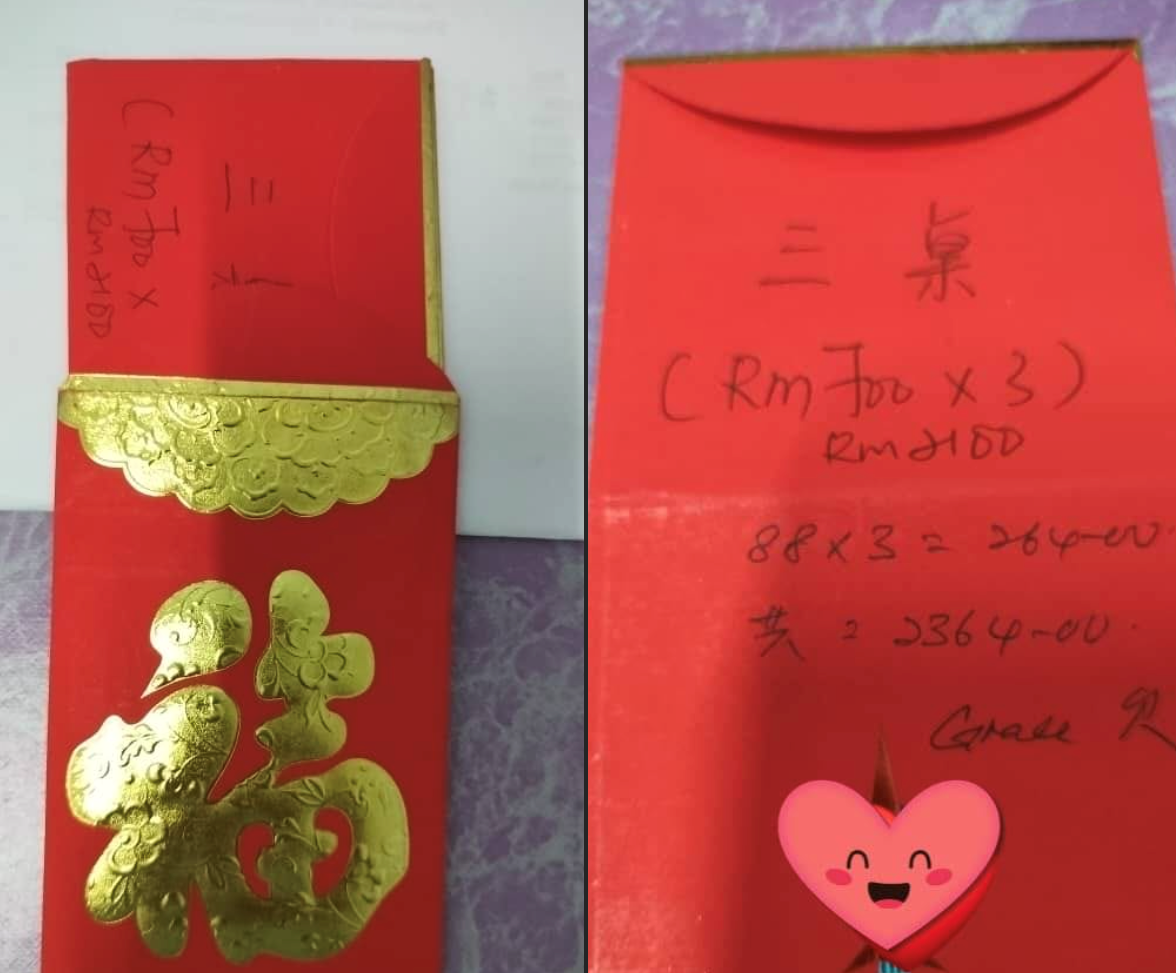 三
(Rm 700 x
Rm 2100
福
三 桌
(Rm 700 x 3)
Rm 2100
88 x 3 = 264-00
共 = 2364-00.
Grace 欠